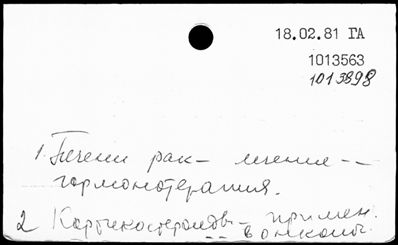 18.02.81 ГА
1013563
1013898
1. Печени рак – лечение --
гормонотерапия.
2 Кортикостероиды – примен.
в онкол.